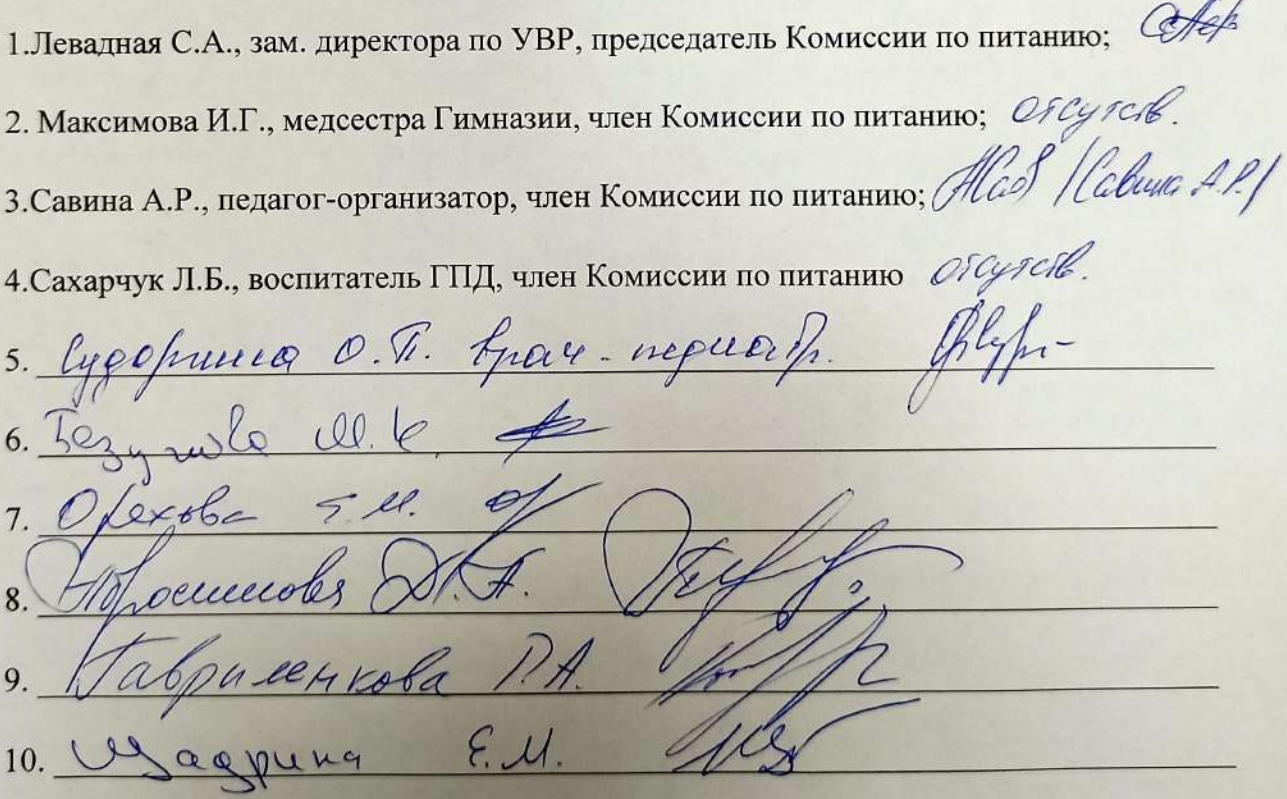 1.Левадная С.А., зам. директора по УВР, председатель Комиссии по питанию;
2. Максимова И.Г., медсестра Гимназии, член Комиссии по питанию; отсутств.
3.Савина А.Р., педагог-организатор, член Комиссии по питанию; /Савина А.Р./
4.Сахарчук Л.Б., воспитатель ГПД, член Комиссии по питанию отсутств.
5. О.П. врач-педиатр.
6. М.К.
7. Орехова Е.М.
8.
9. Гавриленкова Г.А.
10. Щадрина Е.М.